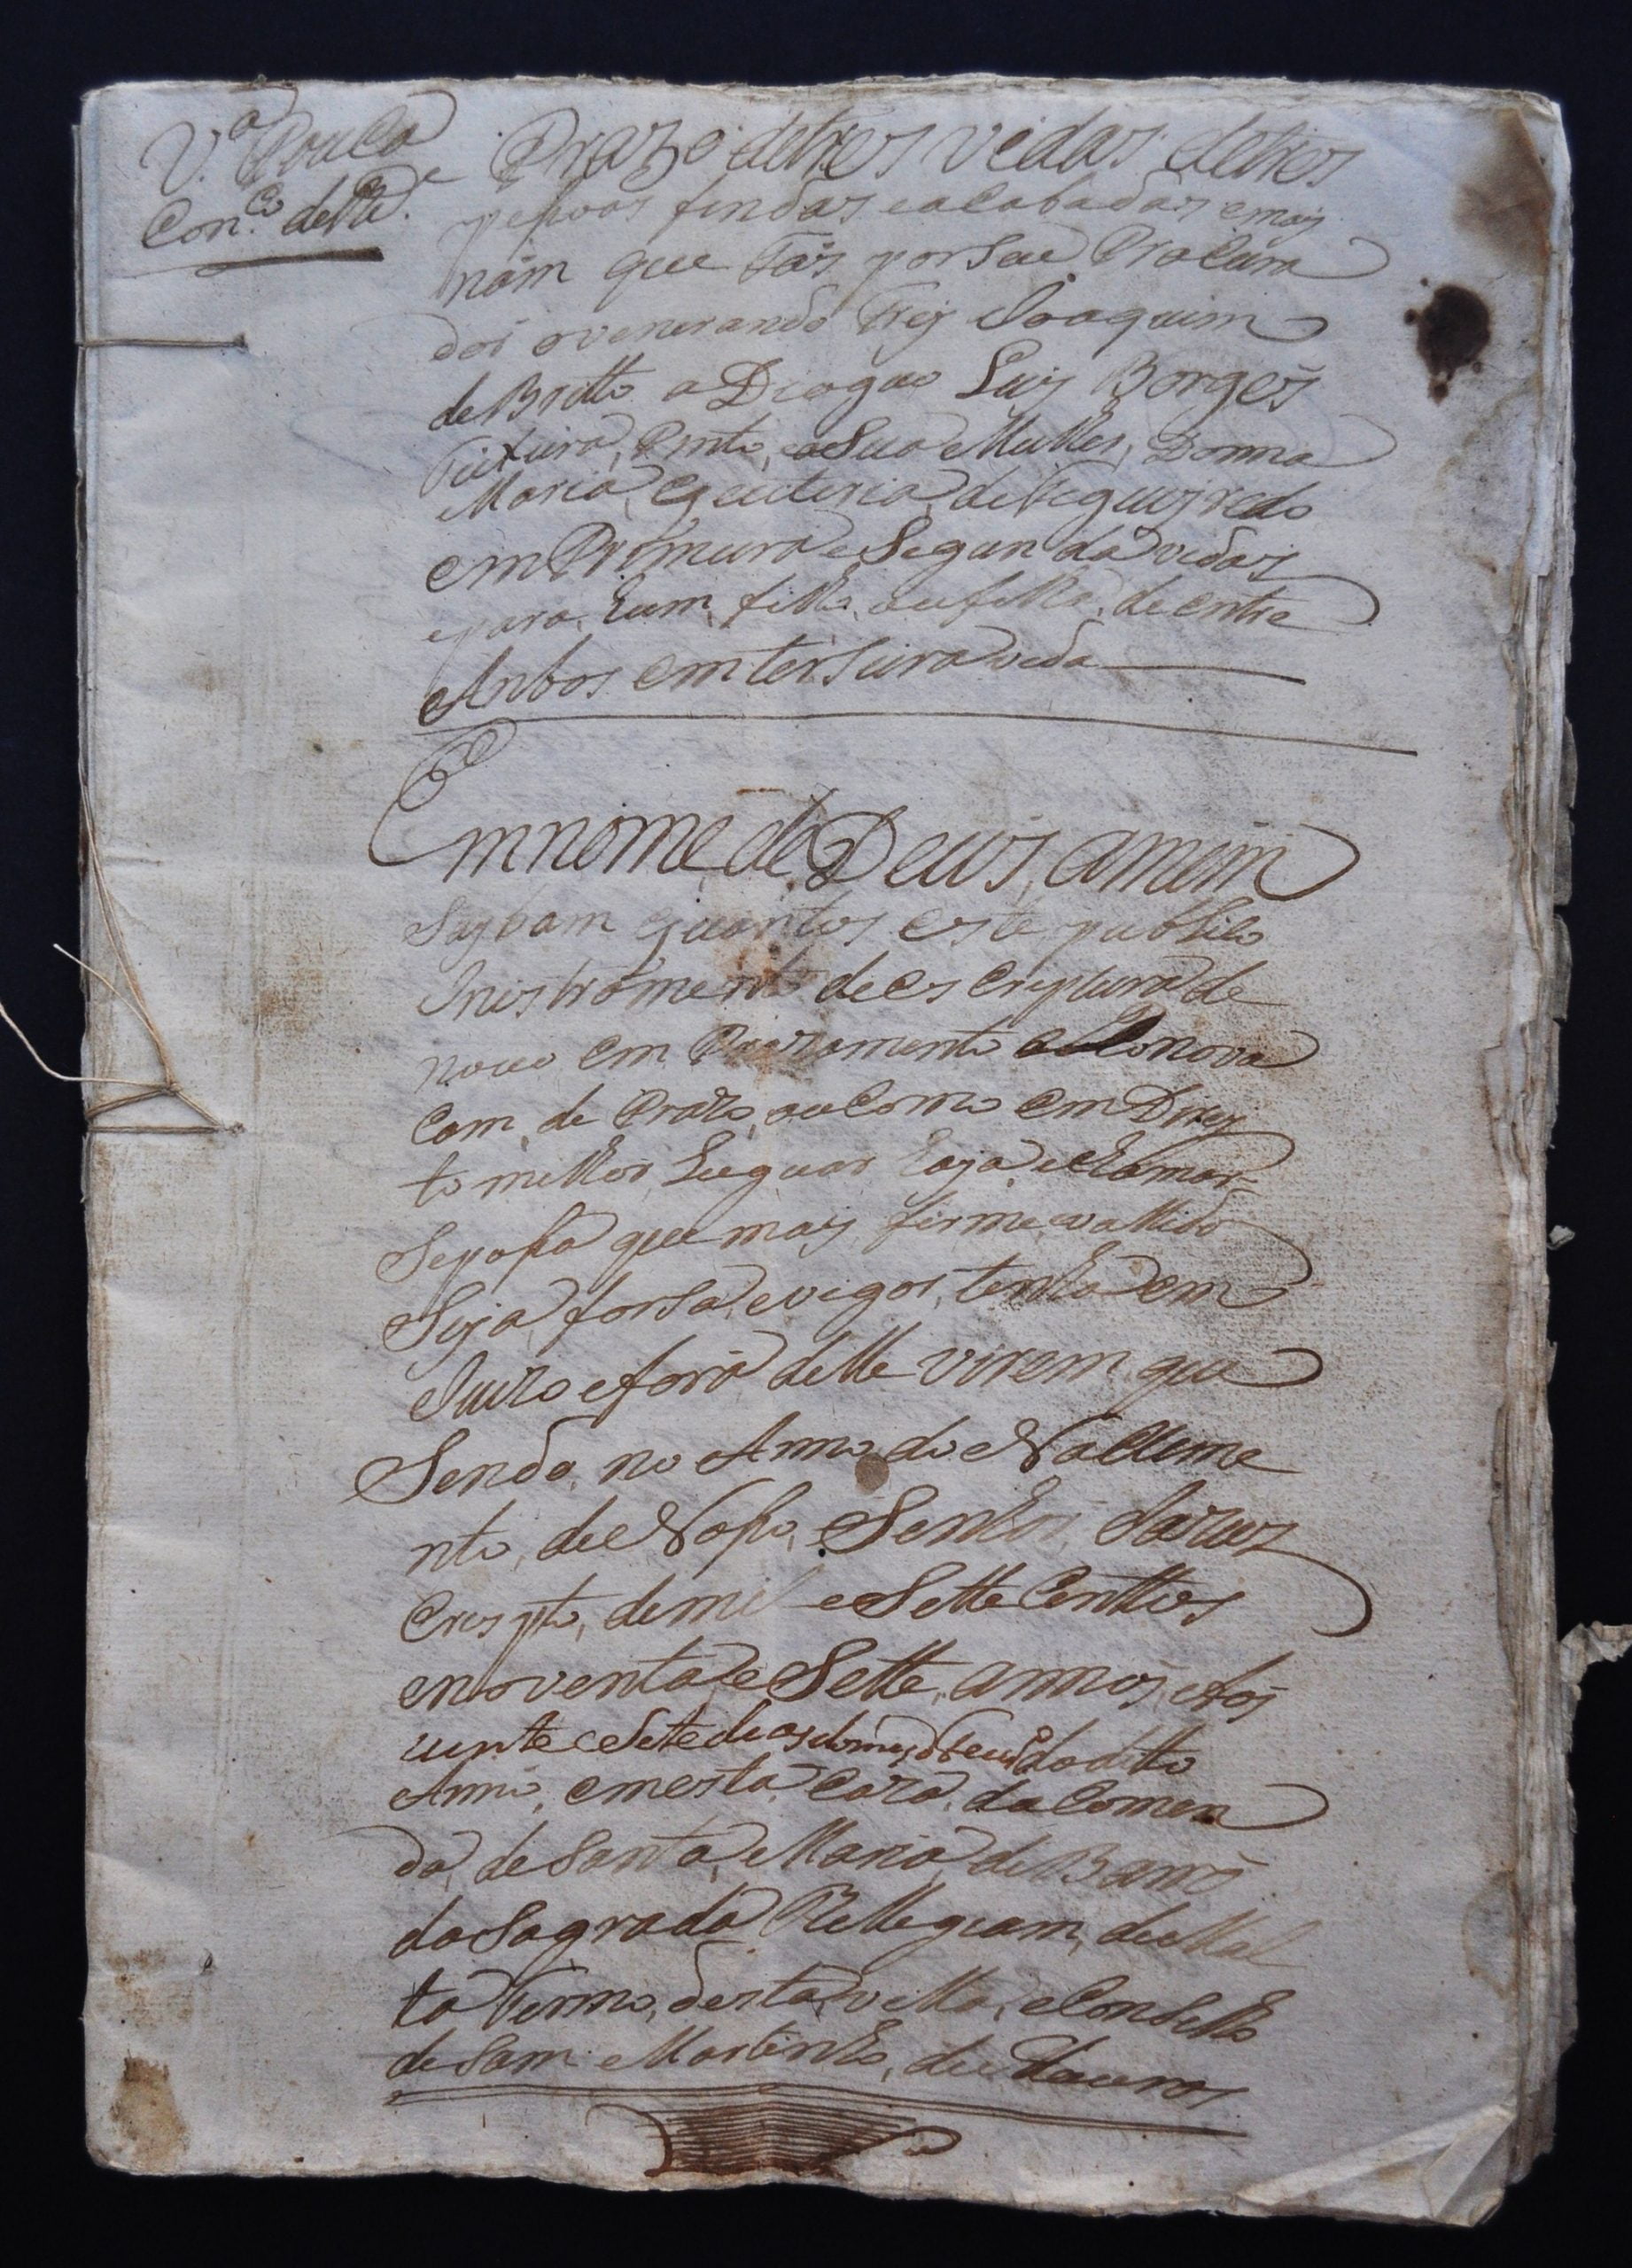 V.ª Pouca
Con.co de
Prazo detres vidas detres
pessoas findas eacabadas emaiz
nam que Fás porseu Procura
dor ovenerando Frey Joaquim
deBritto a Diogao Luis Borges
Teixeira, Pinto, esua Mulher, Donna
Maria, Queiteria, deFegueiredo
emPrimeira eSegunda vidas
epara, hum, filho, oufilha, deentre
Anbos emterseira veda
Em nome de Deuis, amem
Saybam quantos este publico
Inistromento deescriptura de
novo em Prazamento eRenova
cam, de Prazo, oucomo em Drey
to milhor, Luguar haja echamar
Seposa que mais firme, evallido
Seja, forsa, evigor, tenha em
Juizo efora delle virem que
Sendo, no Anno do Nascime
nto, de Nosso, Senhor, Jazus
Crispto, demil eSette Centtos
enoventa eSette, annos, Aos
vinte eSete dias domes de dodito
Anno, emesta, Caza, daComen
da, de Santa, Maria, deBarrô
daSagrada Rellegiam, deMal
ta Termo, desta, villa, eConselho
de Sam Martinho, de Mouros